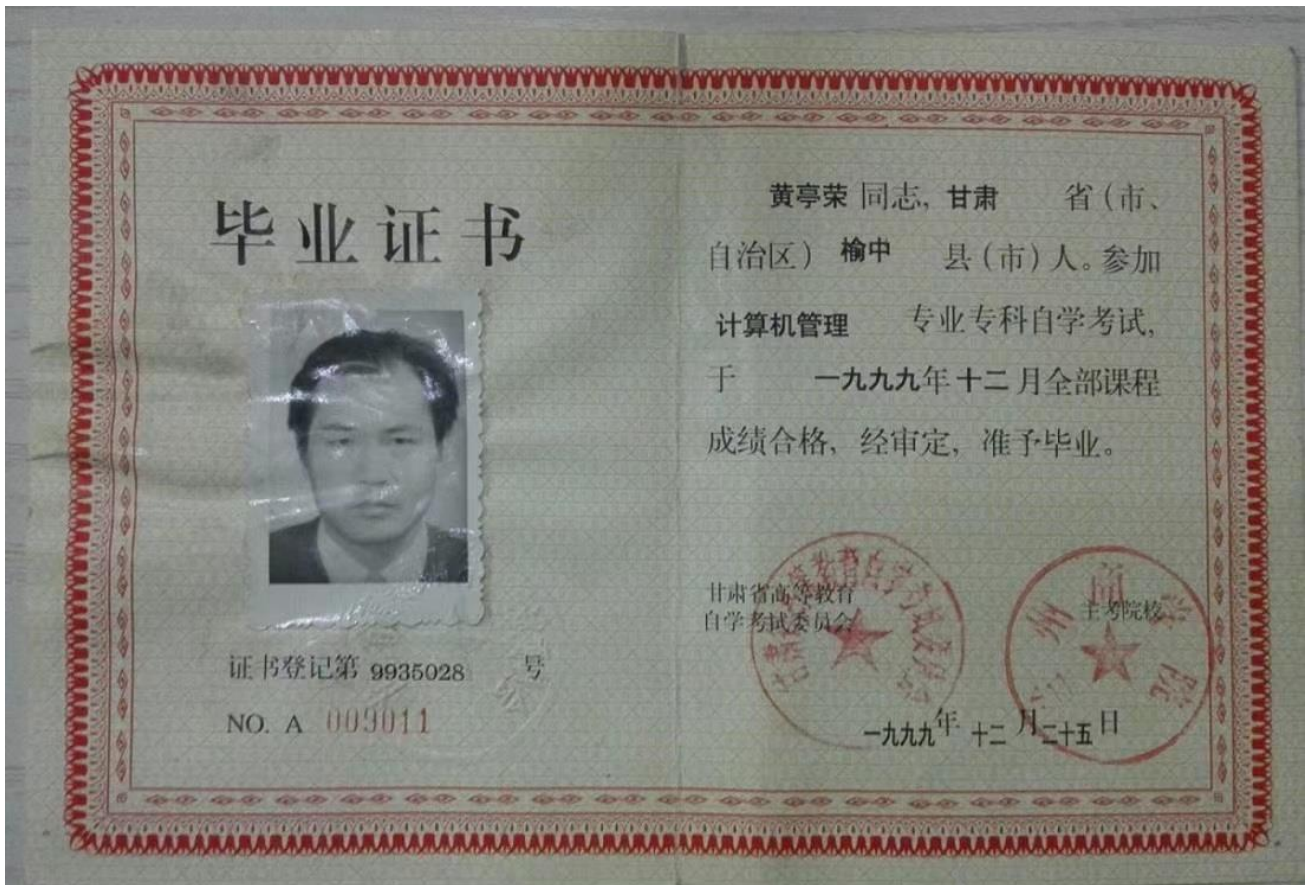 毕业证书
证书登记第 9935028 号
NO. A 009011
黄亭荣 同志, 甘肃 省(市、
自治区) 榆中 县(市)人。参加
计算机管理 专业专科自学考试,
于 一九九九年十二月全部课程
成绩合格, 经审定, 准予毕业。
甘肃省高等教育
自学考试委员会
主考院校
州商学院
一九九九年 十二 月二十五日